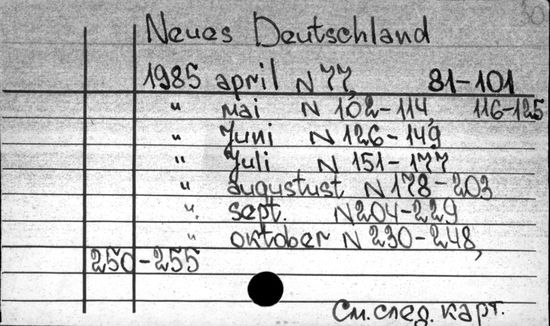 30
Neues Deutschland
1985 april N 77, 81-101
" mai N 102-114, 116-125
" Juni N 126-149
" Juli N 151-177
" augustust N 178-203
" sept. N 204-229
" oktober N 230-248,
250-255
См. след. карт.